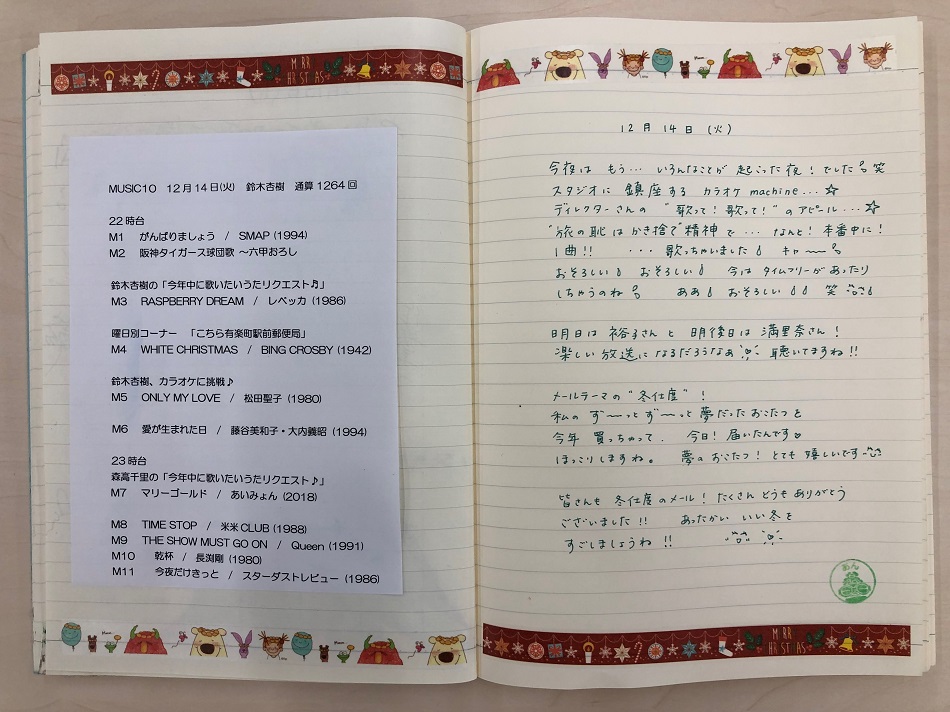 MERR
CHRISTMAS
MUSIC10 12月14日(火) 鈴木杏樹 通算1264回
22時台
M1 がんばりましょう / SMAP (1994)
M2 阪神タイガース球団歌 ～六甲おろし
鈴木杏樹の「今年中に歌いたいうたリクエスト♬」
M3 RASPBERRY DREAM / レベッカ (1986)
曜日別コーナー 「こちら有楽町駅前郵便局」
M4 WHITE CHRISTMAS / BING CROSBY (1942)
鈴木杏樹、カラオケに挑戦♪
M5 ONLY MY LOVE / 松田聖子 (1980)
M6 愛が生まれた日 / 藤谷美和子・大内義昭 (1994)
23時台
森高千里の「今年中に歌いたいうたリクエスト♪」
M7 マリーゴールド / あいみょん (2018)
M8 TIME STOP / 米米CLUB (1988)
M9 THE SHOW MUST GO ON / Queen (1991)
M10 乾杯 / 長渕剛 (1980)
M11 今夜だけきっと / スターダストレビュー (1986)
12月14日 (火)
今夜は もう… いろんなことが 起こった夜！でした 笑
スタジオに 鎮座する カラオケ machine...☆
ディレクターさんの "歌って！歌って！"のアピール...☆
"旅の恥はかき捨て"精神で... なんと！本番中に！
1曲!! ... 歌っちゃいました! キャー〜
おそろしい! おそろしい! 今は タイムフリーがあったり
しちゃうのね ああ! おそろしい!! 笑
明日は 裕子さん と 明後日は 満里奈さん！
楽しい 放送に なるだろうなぁ 聴いてますね!!
メールテーマの "冬仕度"！
私の ず〜〜っと ず〜〜っと 夢だった おこたつを
今年 買っちゃって. 今日！届いたんです♡
ほっこりしますね。 夢の おこたつ！とても 嬉しいです
皆さんも 冬仕度のメール！たくさん どうも ありがとう
ございました!! あったかい いい 冬を
すごしましょうね!!
あん